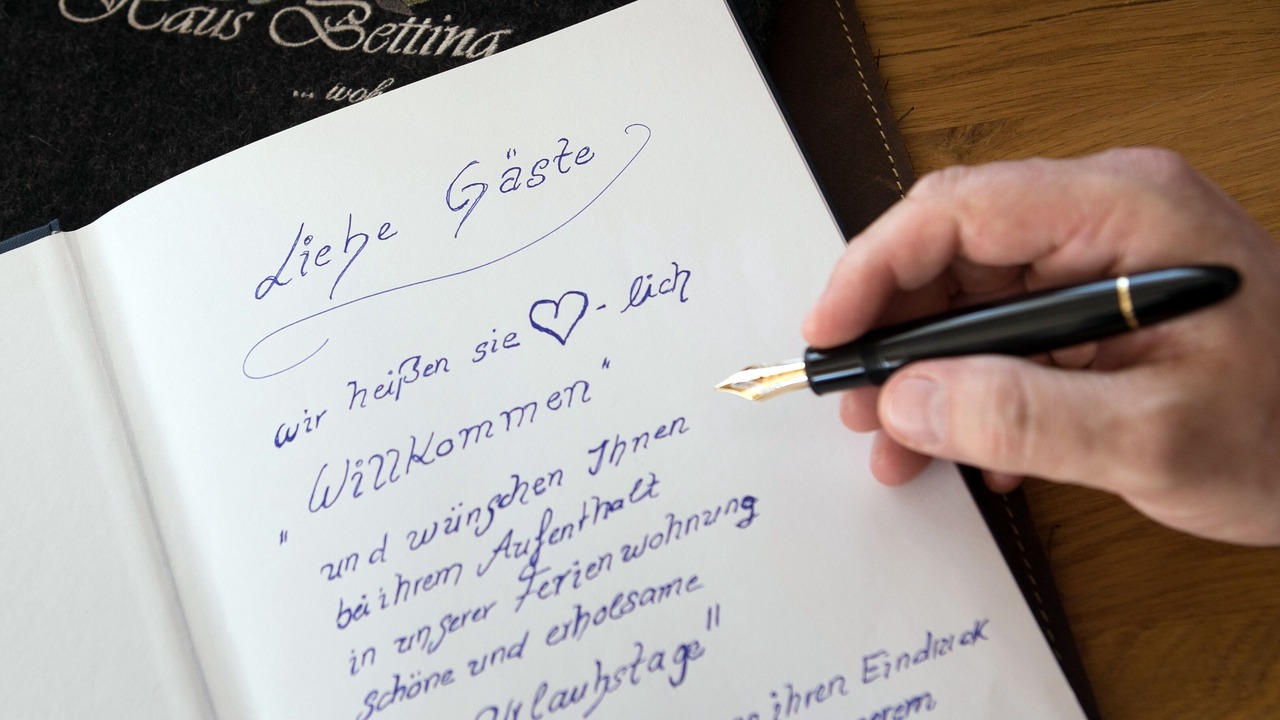 Haus Betting
... woh
Liebe Gäste
wir heißen sie ♡-lich
"Willkommen"
und wünschen Ihnen
bei ihrem Aufenthalt
in unserer Ferienwohnung
schöne und erholsame
Urlaubstage"
ihren Eindruck